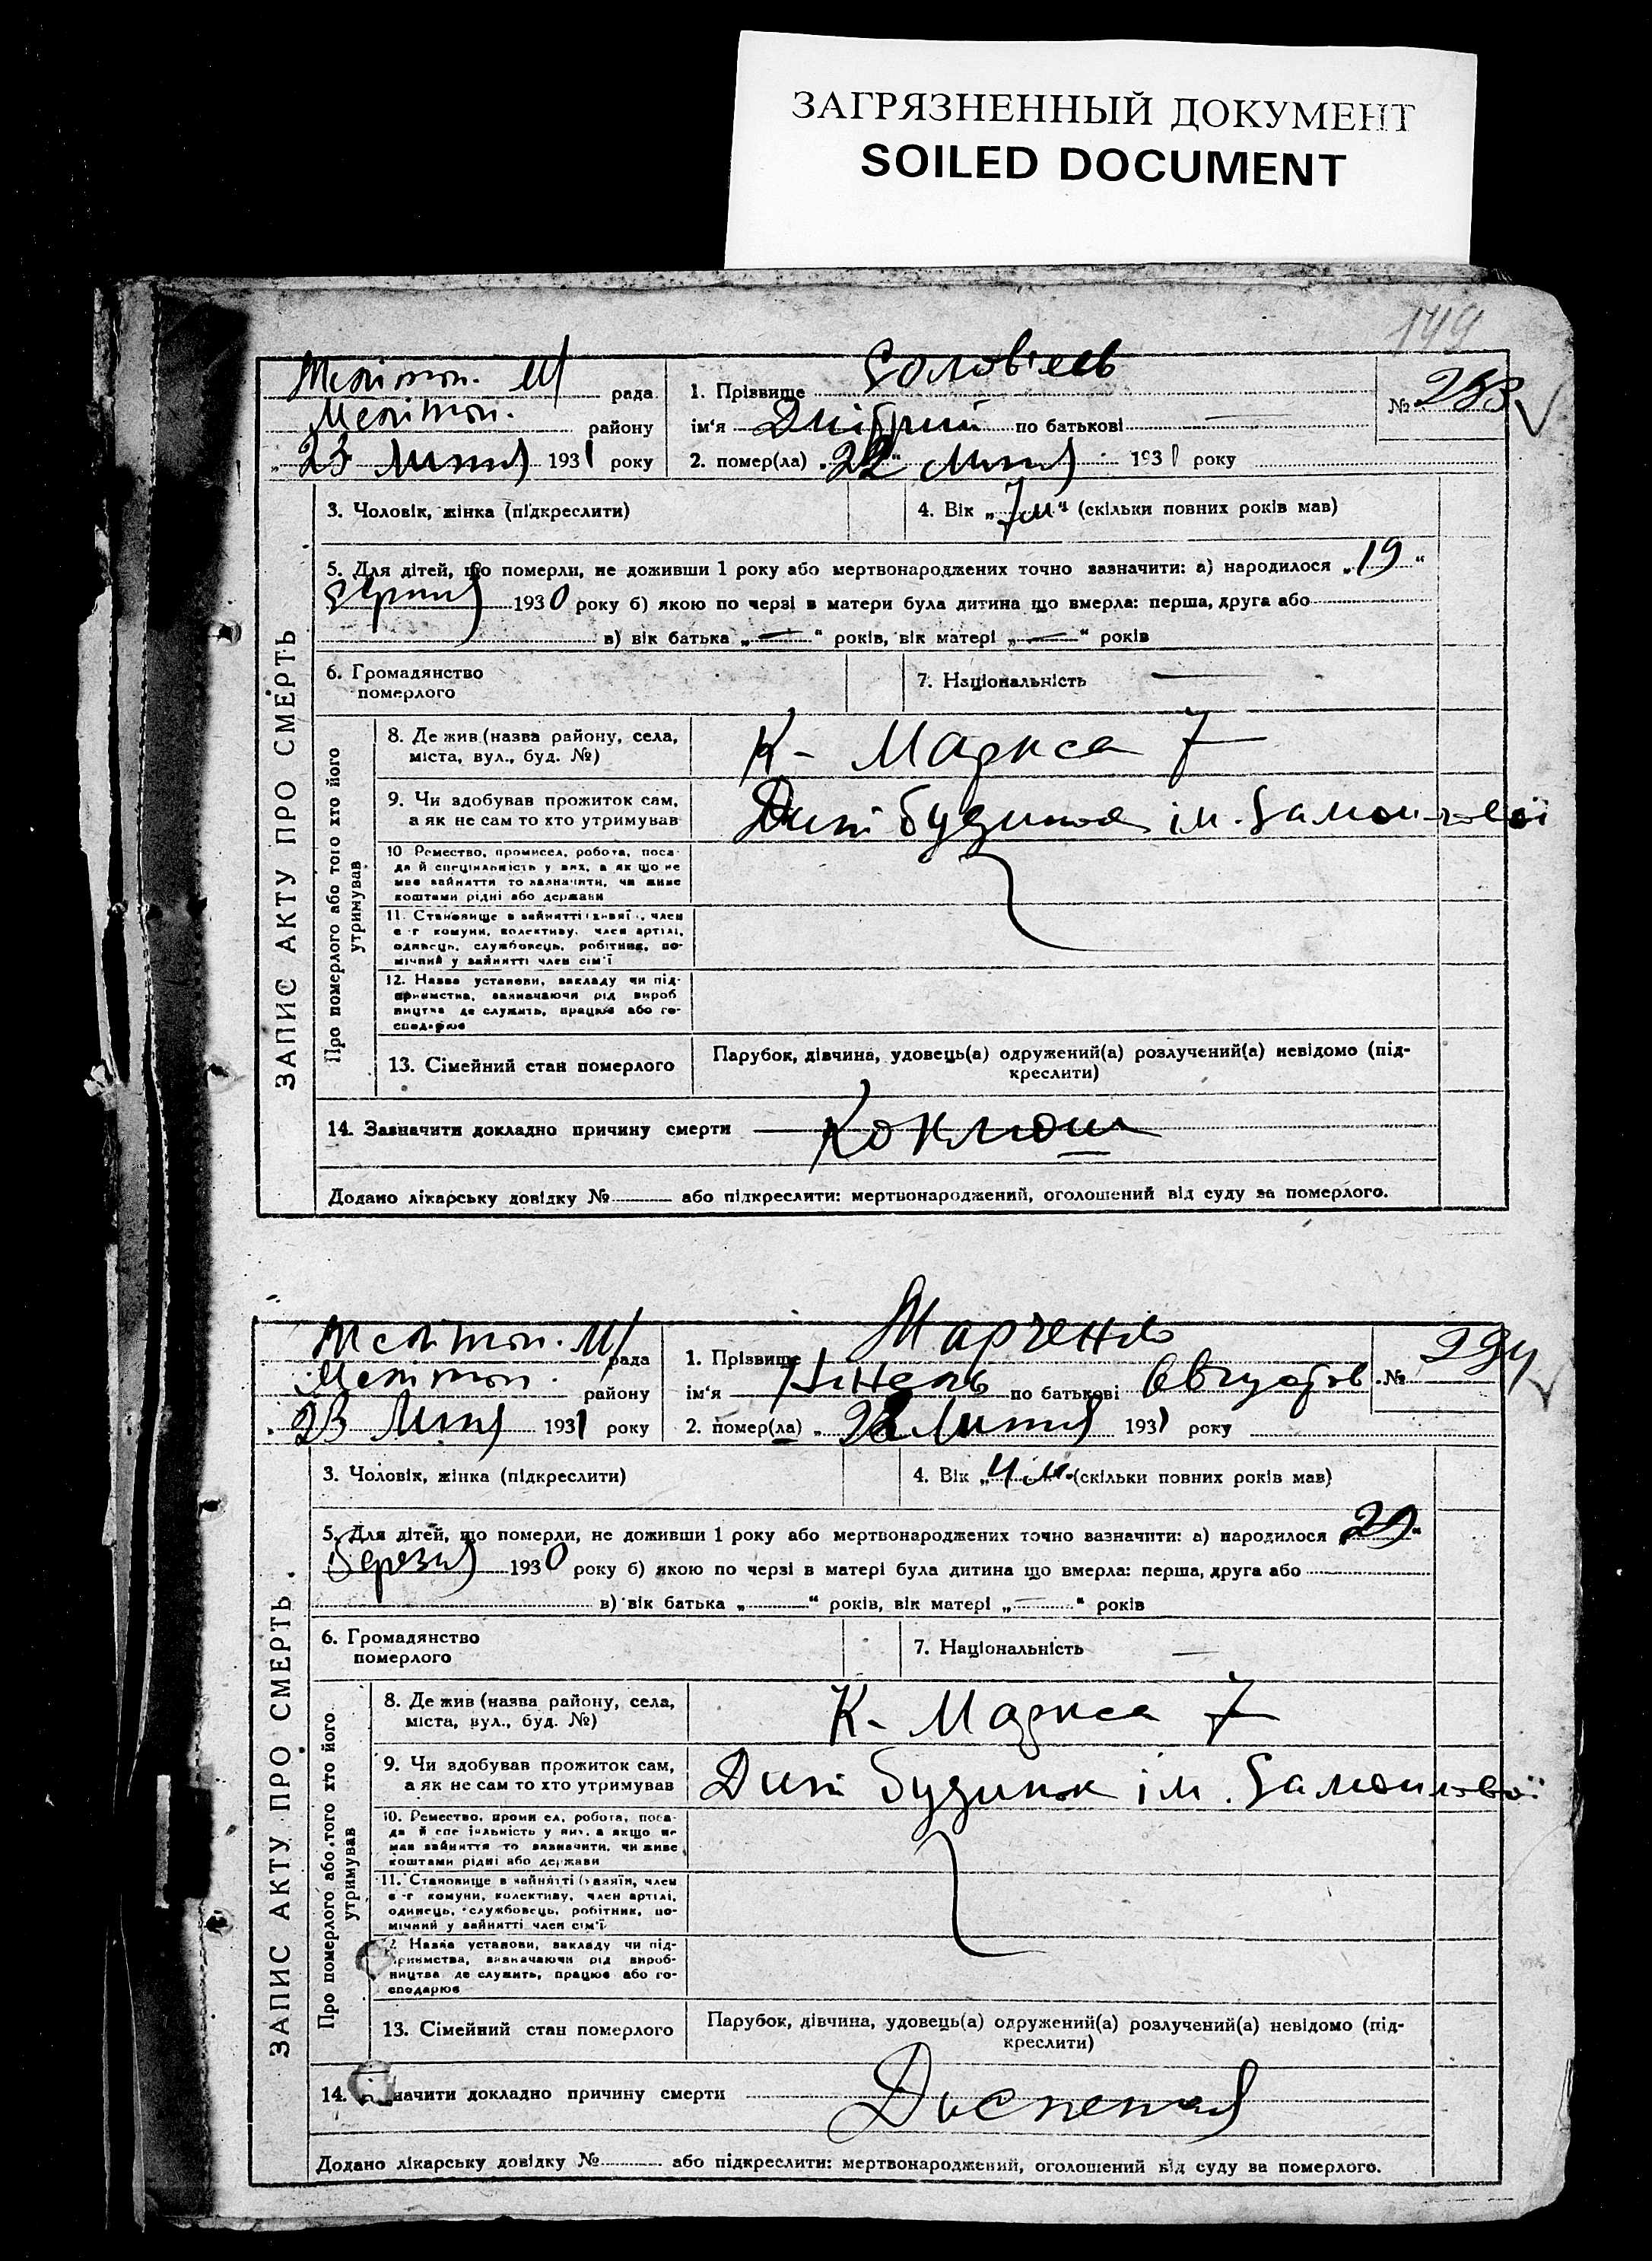 ЗАГРЯЗНЕННЫЙ ДОКУМЕНТ
SOILED DOCUMENT
149
ЗАПИС АКТУ ПРО СМЕРТЬ
Мелітоп. М/ рада
Мелітоп. району
„ 23 Липня 1931 року
1. Прізвище Солов'єв
ім'я Дмітрий по батькові —
2. помер(ла) „22" Липня 1931 року
№ 293
3. Чоловік, жінка (підкреслити)
4. Вік „7 м" (скільки повних років мав)
5. Для дітей, що померли, не доживши 1 року або мертвонароджених точно зазначити: а) народилося „19"
1930 року б) якою по черзі в матери була дитина що вмерла: перша, друга або
в) вік батька „—" років, вік матері „—" років
6. Громадянство померлого
7. Національність —
Про померлого або того хто його утримував
8. Де жив (назва району, села, міста, вул., буд. №)
К- Маркса 7
9. Чи здобував прожиток сам, а як не сам то хто утримував
Дит будинок ім. Самойлової
10. Ремество, промисел, робота, посада й спеціяльність у них, а якщо не мав зайняття то зазначити, чи живе коштами рідні або держави
11. Становище в зайнятті (хазяїн, член с-г комуни, колективу, член артілі, одинець, службовець, робітник, помічний у зайнятті член сім'ї
12. Назва установи, закладу чи підприємства, зазначаючи рід виробництва де служить, працює або господарює
13. Сімейний стан померлого
Парубок, дівчина, удовець(а) одружений(а) розлучений(а) невідомо (підкреслити)
14. Зазначити докладно причину смерти Коклюш
Додано лікарську довідку № або підкреслити: мертвонароджений, оголошений від суду за померлого.
ЗАПИС АКТУ ПРО СМЕРТЬ.
Мелітоп. М/ рада
Мелітоп. району
„ 23 Липня 1931 року
1. Прізвище Марченко
ім'я Нінель по батькові Августов
2. помер(ла) „ 22 Липня 1931 року
№ 294
3. Чоловік, жінка (підкреслити)
4. Вік „4 м." (скільки повних років мав)
5. Для дітей, що померли, не доживши 1 року або мертвонароджених точно зазначити: а) народилося „29"
Березня 1930 року б) якою по черзі в матері була дитина що вмерла: перша, друга або
в) вік батька „ " років, вік матері „—" років
6. Громадянство померлого
7. Національність —
Про померлого або того хто його утримував
8. Де жив (назва району, села, міста, вул., буд. №)
К- Маркса 7
9. Чи здобував прожиток сам, а як не сам то хто утримував
Дит будинок ім. Самойлової
10. Ремество, промисел, робота, посада й спеціяльність у них, а якщо не мав зайняття то зазначити, чи живе коштами рідні або держави
11. Становище в зайнятті (хазяїн, член с-г комуни, колективу, член артілі, одинець, службовець, робітник, помічний у зайнятті член сім'ї
12. Назва установи, закладу чи підприємства, визначаючи рід виробництва де служить, працює або господарює
13. Сімейний стан померлого
Парубок, дівчина, удовець(а) одружений(а) розлучений(а) невідомо (підкреслити)
14. Зазначити докладно причину смерти Диспепсия
Додано лікарську довідку № або підкреслити: мертвонароджений, оголошений від суду за померлого.